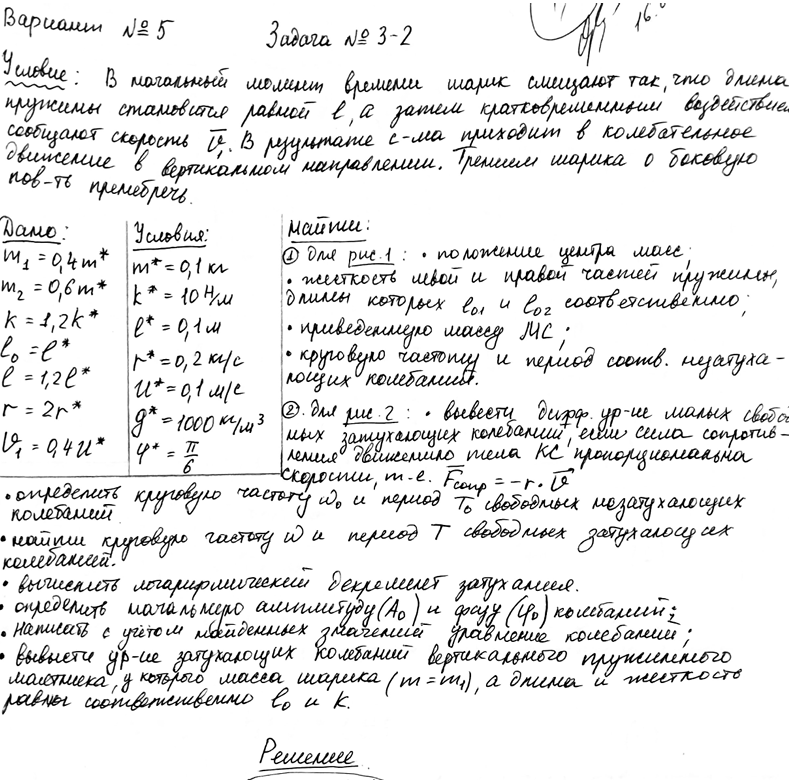 Вариант №5
Задача №3-2
16.
Условие: В начальный момент времени шарик смещают так, что длина
пружины становится равной l, а затем кратковременным воздействием
сообщают скорость v̄₁. В результате с-ма приходит в колебательное
движение в вертикальном направлении. Трением шарика о боковую
пов-ть пренебречь.
Дано:
m₁ = 0,4m*
m₂ = 0,6m*
k = 1,2k*
l₀ = l*
l = 1,2l*
r = 2r*
v₁ = 0,4u*
Условия:
m* = 0,1 кг
k* = 10 Н/м
l* = 0,1 м
r* = 0,2 кг/с
u* = 0,1 м/с
g* = 1000 кг/м³
φ* = π/6
Найти:
① для рис.1: • положение центра масс;
• жесткость левой и правой частей пружины,
длины которых l₀₁ и l₀₂ соответственно;
• приведенную массу МС;
• круговую частоту и период соотв. незатуха-
ющих колебаний.
②. для рис.2: • вывести дифф. ур-ие малых свобод-
ных затухающих колебаний, если сила сопротив-
ления движению тела КС пропорциональна
скорости, т.е. F̄сопр = -r · v̄
• определить круговую частоту ω₀ и период T₀ свободных незатухающих
колебаний
• найти круговую частоту ω и период T свободных затухающих
колебаний.
• вычислить логарифмический декремент затухания.
• определить начальную амплитуду (A₀) и фазу (φ₀) колебаний;
• написать с учётом найденных значений уравнение колебаний;
• вывести ур-ие затухающих колебаний вертикального пружинного
маятника, у которого масса шарика (m = m₁), а длина и жесткость
равны соответственно l₀ и k.
Решение